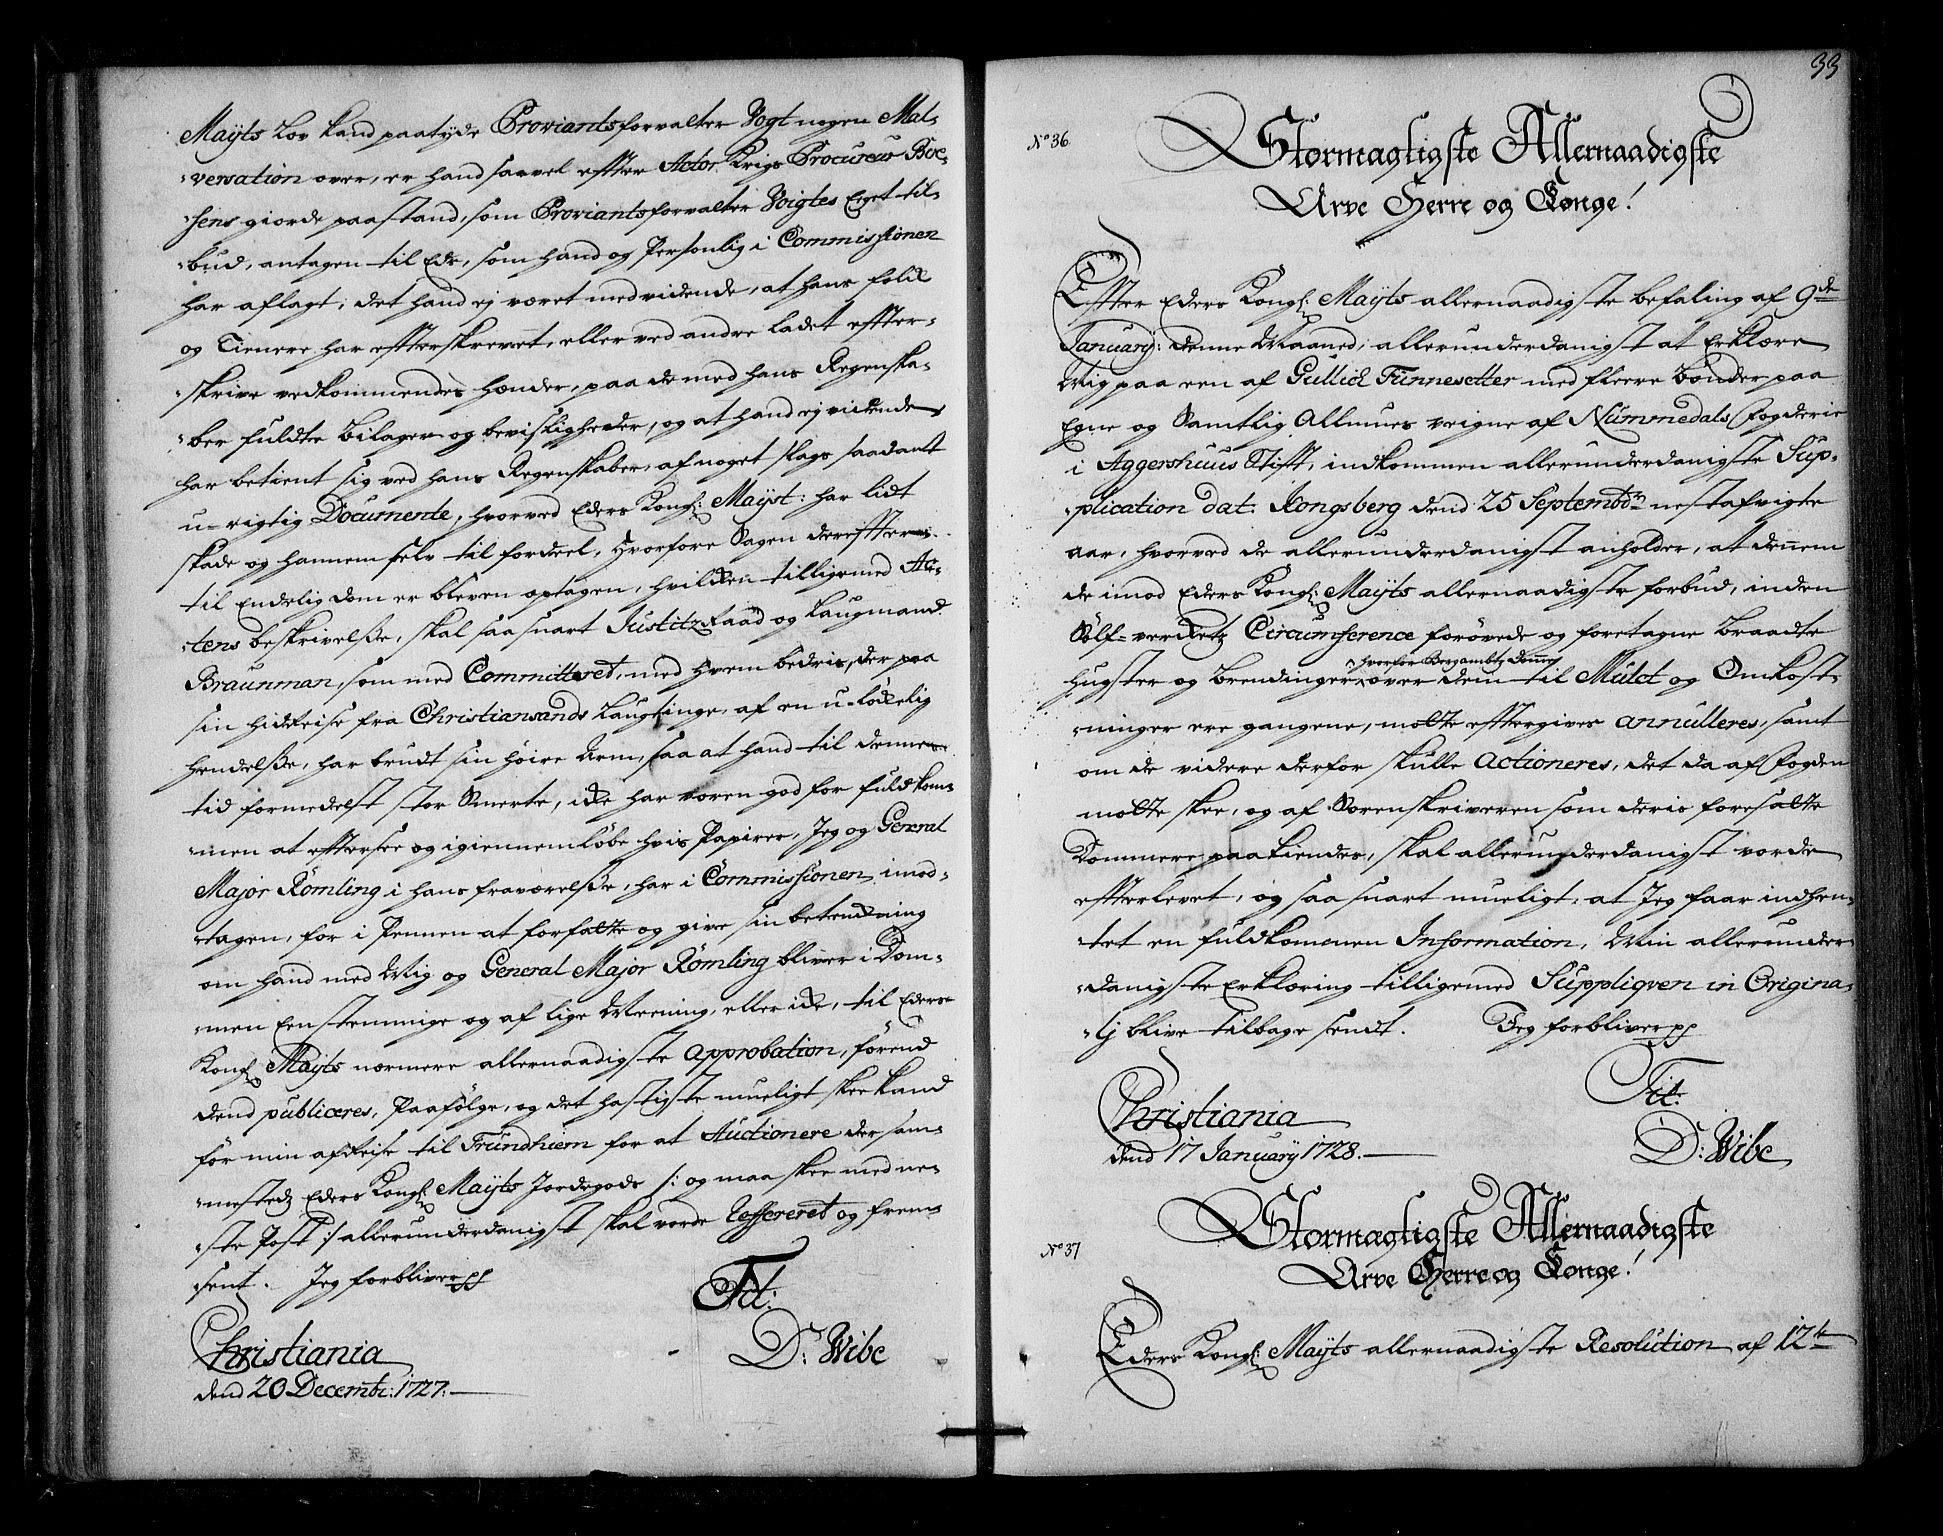 Maÿts Lov kand paatyde Proviantsforvalter Vogt nogen Mal-
-versation over, er hand saavel effter Actor Krigs Procureur Boe-
-sens giorde paastand, som Proviantsforvalter Voigtes Eget til-
-bud, antagen til Ede, som hand og Personlig i Commissionen
har aflagt; det hand ej været medvidende, at hans folck
og Tienere har effterskrevet, eller ved andre ladet effter-
-skrive vedkommendes hænder, paa de med hans Regenska-
-ber fuldte bilager og bevisligheder, og at hand ej vidende
har betient sig ved hans Regenskaber, af noget slags saadant
u-rigtig Documente, hvorved Eders Kongl: Maÿst: har lidt
skade og hannem selv til fordeel, Hvorfore Sagen dereffter
til Endelig dom er bleven optagen, hvilcken tilligemed Ac-
-tens beskrivelße, skal saa snart JustitzRaad og Laugmand
Braunman, som med Committeret, med hvem bedris, der paa
sin hidreise fra Christiansands Laugtinge, af en u-løckelig
hendelße, har brudt sin høire Arm, saa at hand til denne
tid formedelst stor Smerte, icke har voren god for fuldkom-
-men at effterse og igiennemløbe hvis Papirer, Jeg og General
Major Römling i hans fraværelße, har i Commissionen imod-
-tagen, for i Pennen at forfatte og give sin betenckning
om hand med Mig og General Major Römling bliver i Dom-
-men Eenstemmige og af lige Meening, eller icke, til Eders
Kongl Maÿts nærmere allernaadigste approbation, førend
dend publiceres, Paafølge, og det hastigste mueligt skee kand
før min afreise til Trundhiem for at Auctionere der sam-
-mestedz Eders Kongl: Maÿts Jordegods /: og maa skee med ne-
-ste Post :/ allerunderdanigst skal vorde Refereret og frem-
sent. Jeg forbliver pp
Tit:
D: Wibe
Christiania
dend 20 Decembr: 1727.
33
No 36
Stormagtigste Allernaadigste
Arve Herre og Konge!
Effter Eders Kongl: Maÿts allernaadigste befaling af 9de
January: denne Maaned, allerunderdanigst at Erklære
Mig paa een af Gullich Funnesetter med fleere bønder paa
Egne og Samtlig Allmues veigne af Nummedals Fogderie
i Aggershuus Stift, indkommen allerunderdanigste Sup-
-plication dat: Kongsberg dend 25 Septembr nestafvigte
aar, hvorved de allerunderdanigst anholder, at dennem
de imod Eders Kongl: Maÿts allernaadigste forbud, inden
Sølf-verketz Circumference forøvede og foretagne braadte
hugster og brendinger, hvorfor Bergambtz Domme over dem til Mulct og Omkost-
-ninger ere gangene, motte efftergives annulleres, samt
om de videre derfor skulle actioneres, det da af Fogden
motte skee, og af Sorenskriveren som deris foresatte
Dommere paakiendes, skal allerunderdanigst vorde
effterlevet, og saa snart mueligt, at Jeg faar indhen-
-tet en fuldkomenen Information, Min allerunder-
-danigste Erklæring tilligemed Suppliqven in Origina-
-lj blive tilbage sendt. Jeg forbliver pp
Tit:
Christiania
dend 17 January 1728.
D: Wibe
No 37
Stormagtigste Allernaadigste
Arve Herre og Konge!
Eders Kongl: Maÿts allernaadigste Resolution af 12te